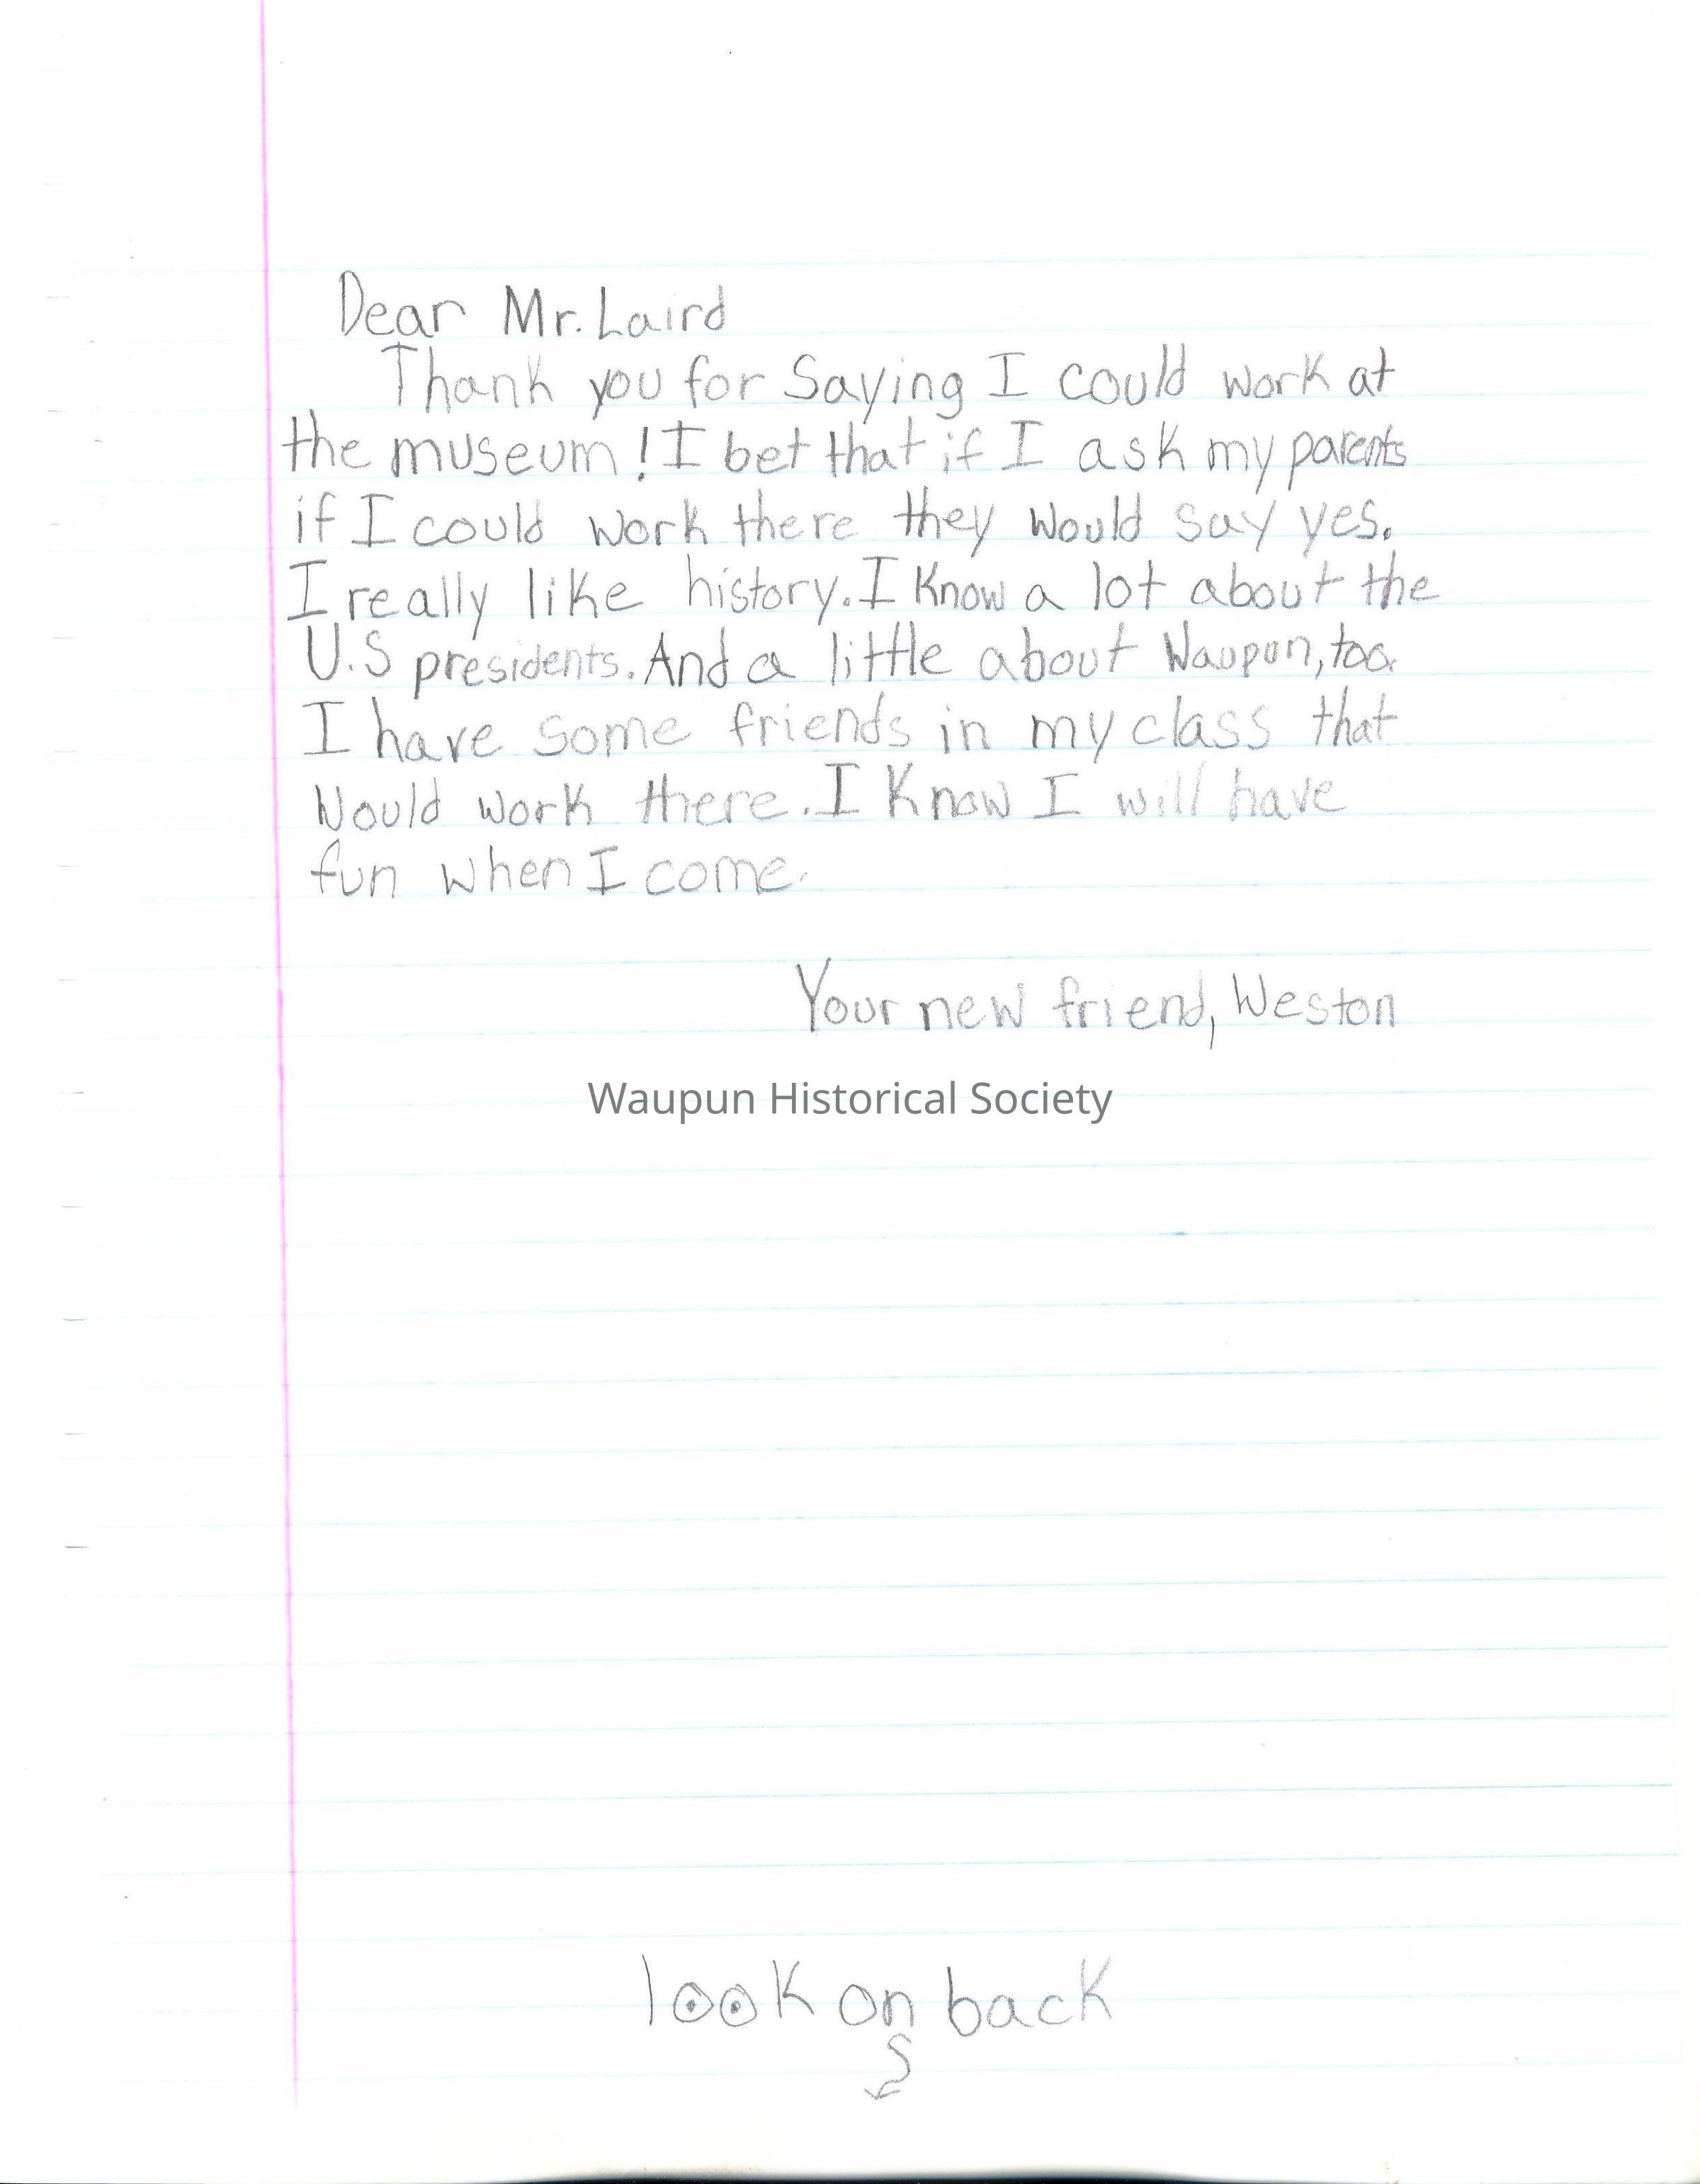 Dear Mr. Laird
Thank you for Saying I could work at
the museum! I bet that if I ask my parents
if I could work there they would say yes.
I really like history. I Know a lot about the
U.S presidents. And a little about Waupun, too.
I have some friends in my class that
Would work there. I Know I will have
fun when I come.
Your new friend, Weston
Waupun Historical Society
look on back